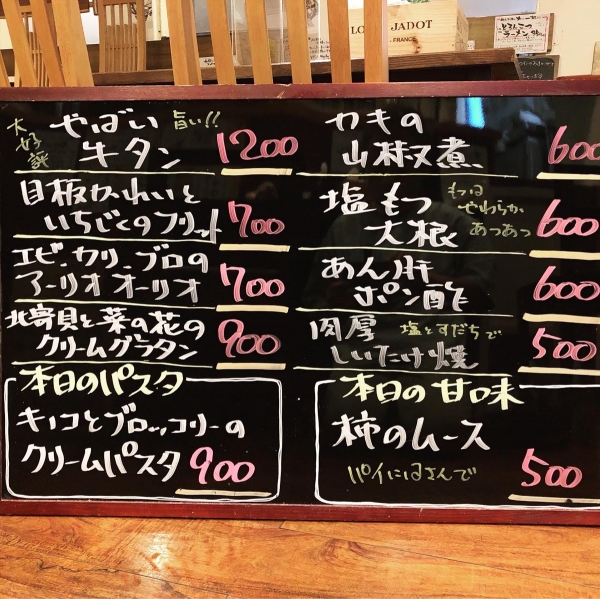 LOUIS JADOT
FRANCE
とろんこつ
ラーメン
大好評
やばい 旨い!!
牛タン 1200
目板かれいと
いちじくのフリット 700
エビ.カリ.ブロの
アーリオオーリオ 700
北寄貝と菜の花の
クリームグラタン 900
本日のパスタ
キノコとブロッコリーの
クリームパスタ 900
カキの
山椒煮 600
塩もつ
大根 600
もつは
やわらか
あつあつ
あん肝
ポン酢 600
肉厚 塩とすだちで
しいたけ焼 500
本日の甘味
柿のムース
パイにはさんで 500